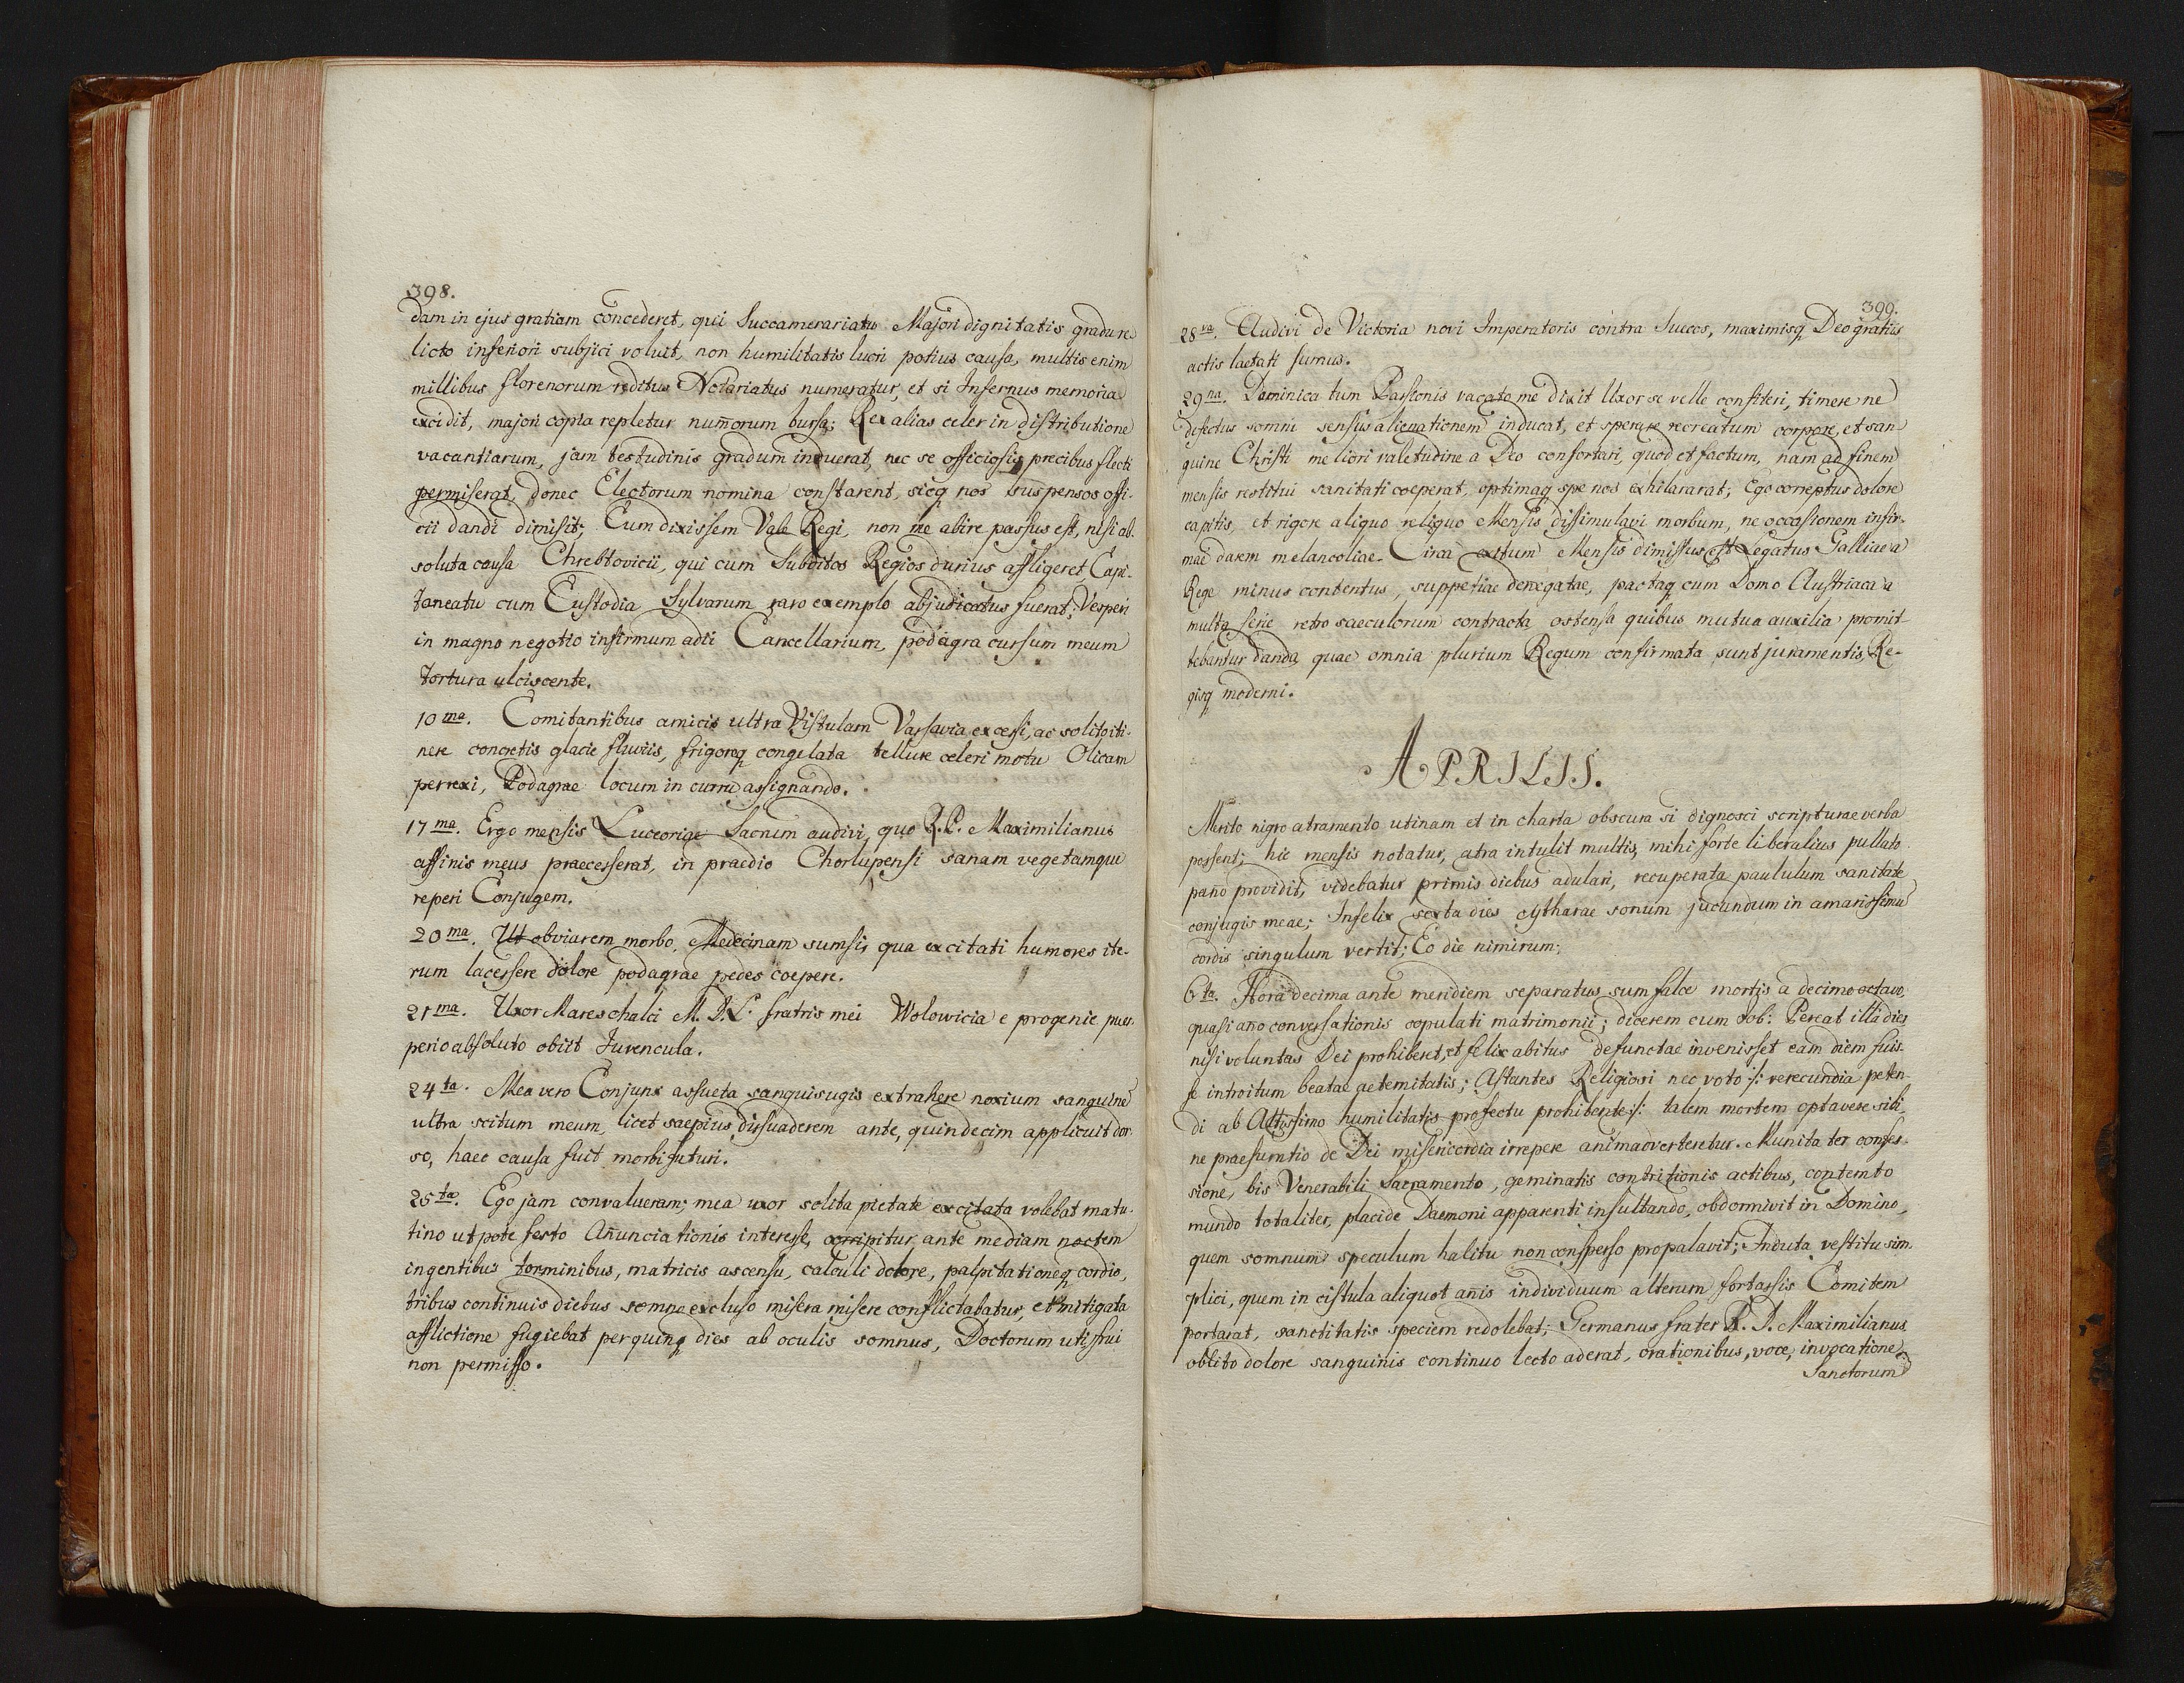 398.
dam in ejus gratiam concederet, qui Succamerariatu Majori dignitatis gradu re
licto inferiori subjici voluit, non humilitatis lucri potius causa, multis enim
millibus florenorum reditus Notariatus numeratur, et si Infernus memoria
excidit, majori copia repletur num̄orum bursa; Rex alias celer in distributione
vacantiarum, jam testudinis gradum induerat, nec se officiosis precibus flecti
permiserat, donec Electorum nomina constarent, sicq nos suspensos offi-
cii dandi dimisit; Cum dixissem Vale Regi, non me abire passus est, nisi ab-
soluta causa Chrebtovicii, qui cum Subditos Regios durius affligeret, Capi-
taneatu cum Custodia Sylvarum raro exemplo abjudicatus fuerat; Vesperi
in magno negotio infirmum adii Cancellarium, podagra cursum meum
tortura ulciscente.
10 ma. Comitantibus amicis ultra Vistulam Varsavia excessi, ac solito iti-
nere concretis glacie fluviis, frigoreq congelata tellure celeri motu Olicam
perrexi, Podagrae locum in curru assignando.
17 ma. Ergo mensis Luceoriae Sacrum audivi, quo R. P. Maximilianus
affinis meus praecesserat, in praedio Chorlupensi sanam vegetamque
reperi Conjugem.
20 ma. Ut obviarem morbo, Medecinam sumsi, qua excitati humores ite-
rum lacessere dolore podagrae pedes coepere.
21 ma. Uxor Mareschalci M. D. L. fratris mei Wolowicia e progenie puer-
perio absoluto obiit Juvencula.
24 ta. Mea vero Conjunx assueta sanguisugis extrahere noxium sanguine
ultra scitum meum, licet saepius dissuaderem ante, quindecim applicuit dor
so, haec causa fuit morbi futuri.
25 ta. Ego jam convalueram; mea uxor solita pietate excitata volebat matu-
tino utpote festo An̄unciationis interesse, corripitur ante mediam noctem
ingentibus torminibus, matricis ascensu, calculi dolore, palpitationeq cordis,
tribus continuis diebus somno excluso misera misere conflictabatur, et mitigata
afflictione fugiebat per quinq dies ab oculis somnus, Doctorum uti frui
non permisso.
399.
28 va. Audivi de Victoria novi Imperatoris contra Suecos, maximisq Deo gratiis
actis laetati sumus.
29 na. Dominica tum Passionis vacato me dixit Uxor se velle confiteri, timere ne
defectus somni sensus alienationem inducat, et sperare recreatum corpore, et san
guine Christi meliori valetudine a Deo confortari, quod et factum, nam ad finem
mensis restitui sanitati coeperat, optimaq spe nos exhilararat; Ego correptus dolore
capitis, et rigore aliquo reliquo Mensis dissimulavi morbum, ne occasionem infir-
mae darem melancoliae. Circa exitum Mensis dimissus est Legatus Galliae a
Rege minus contentus, suppetiae denegatae, pactaq cum Domo Austriaca a
multa serie retro saeculorum contracta ostensa quibus mutua auxilia promit-
tebantur danda, quae omnia plurium Regum confirmata sunt juramentis, Re-
gisq moderni.
APRILIS.
Merito nigro atramento utinam et in charta obscura si dignosci scripturae verba
possent; hic mensis notatur, atra intulit multis, mihi forte liberalius pullato
pan̄o providit, videbatur primis diebus adulari, recuperata paululum sanitate
conjugis meae; Infelix sexta dies cytharae sonum jucundum in amarissimū
cordis singulum vertit; Eo die nimirum;
6 ta. Hora decima ante meridiem separatus sum falce mortis a decimo octavo,
quasi an̄o conversationis copulati matrimonii; dicerem cum Job: Pereat illa dies
nisi voluntas Dei prohiberet, et felix abitus defunctae invenisset eam diem fuis-
se introitum beatae aeternitatis; Astantes Religiosi nec voto /: verecundia peten-
di ab Altissimo humilitatis profectu prohibente :/ talem mortem optavere sibi,
ne praesumtio de Dei misericordia irrepere animadverteretur. Munita ter confes-
sione, bis Venerabili Sacramento, geminatis contritionis actibus, contemto
mundo totaliter, placide Daemoni apparenti insultando, obdormivit in Domino,
quem somnum speculum halitu non consperso propalavit; Induta vestitu sim-
plici, quem in cistula aliquot an̄is individuum alterum fortassis Comitem
portarat, sanctitatis speciem redolebat; Germanus frater R. D. Maximilianus
oblito dolore sanguinis continuo lecto aderat, orationibus, voce, invocatione
Sanctorum